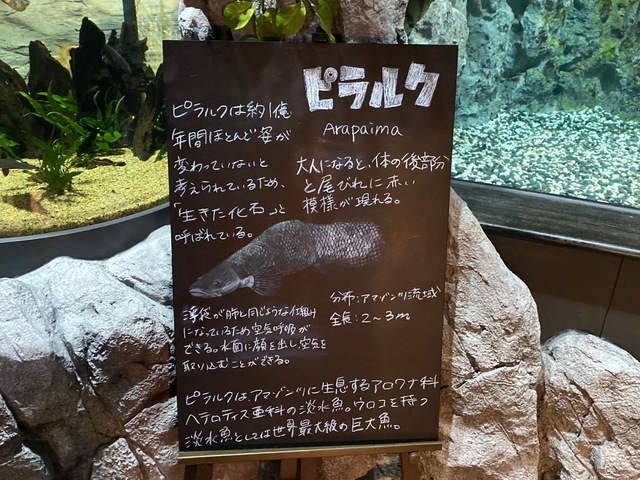 ピラルク
Arapaima
ピラルクは約1億
年間ほとんど姿が
変わっていないと
考えられているため、
「生きた化石」と
呼ばれている。
大人になると、体の後部分
と尾びれに赤い
模様が現れる。
浮袋が肺と同じような仕組み
になっているため空気呼吸が
できる。水面に顔を出し、空気を
取り込むことができる。
分布:アマゾン川流域
全長:2~3m
ピラルクは、アマゾン川に生息するアロワナ科
ヘテロティス亜科の淡水魚。ウロコを持つ
淡水魚としては世界最大級の巨大魚。